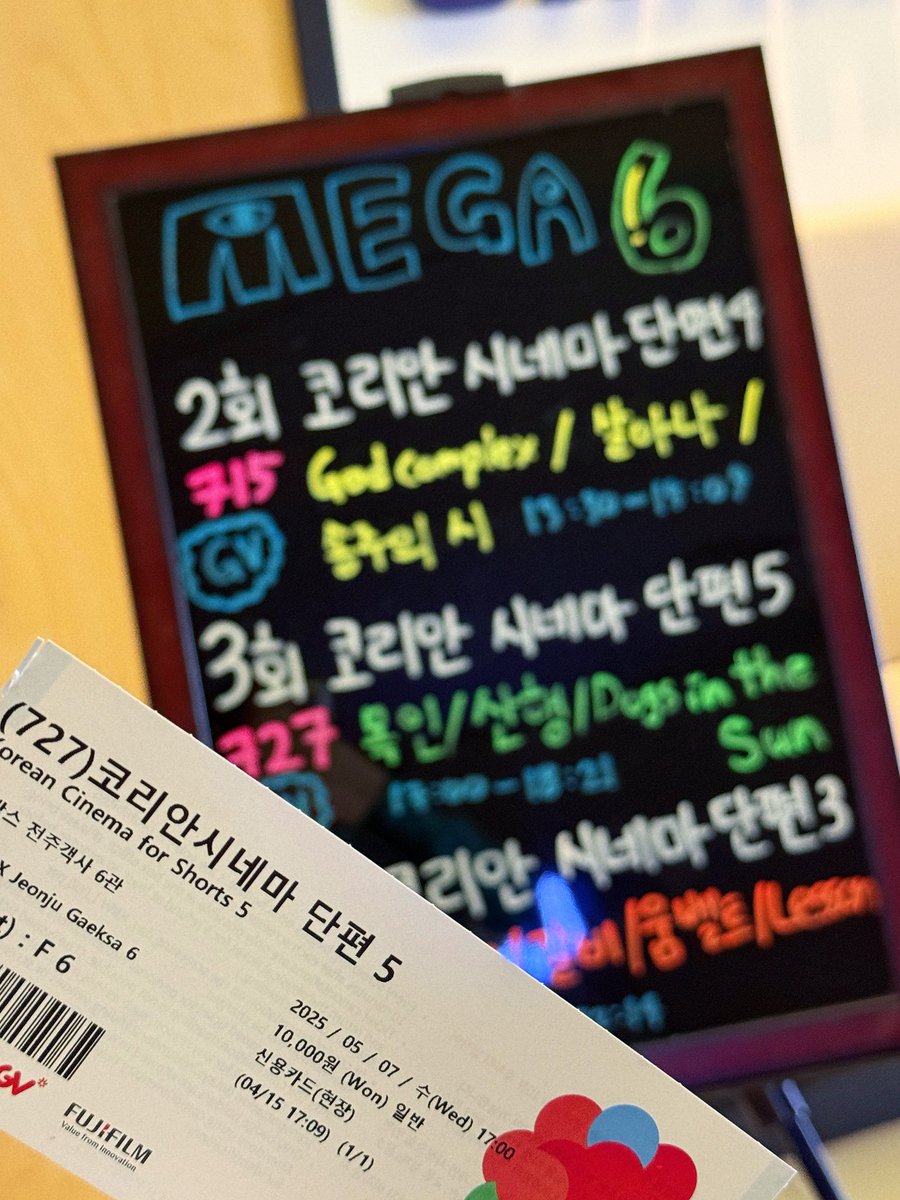 MEGA 6
2회 코리안 시네마 단편4
715 God complex / 살아나 /
GV 송주의 시
3회 코리안 시네마 단편5
727 목인/산행/Dogs in the
Sun
17:00-18:21
코리안 시네마 단편3
/움벨트/Lesson
(727)코리안시네마 단편 5
Korean Cinema for Shorts 5
전주객사 6관
X Jeonju Gaeksa 6
: F 6
2025 / 05 / 07 / 수(Wed) 17:00
10,000원 (Won) 일반
신용카드(현장)
(04/15 17:09) (1/1)
GV
FUJIFILM
Value from Innovation